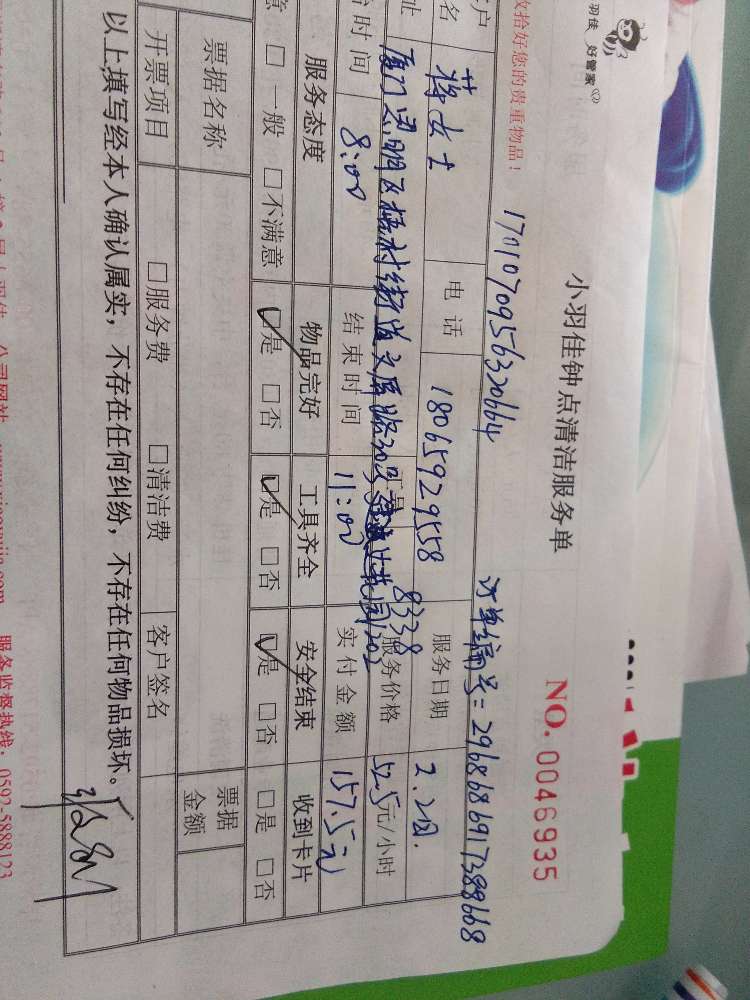 羽佳 好管家
收拾好您的贵重物品！
小羽佳钟点清洁服务单
NO. 0046935
17010709563320664
订单编号：2968686917388668
户名 蒋女士 电话 18065929558 服务日期 2.2日.
址 厦门思明区梧村街道文屏路
1202
8338
服务价格 52.5元/小时
时间 8:00 结束时间 11:00 实付金额 157.5元
服务态度 物品完好 工具齐全 安全结束 收到卡片
意 □ 一般 □不满意 □是 □否 □是 □否 □是 □否 □是 □否
票据名称 票据金额
开票项目 □服务费 □清洁费 客户签名
以上填写经本人确认属实，不存在任何纠纷，不存在任何物品损坏。
公司网站 服务监督热线：0592-5888123